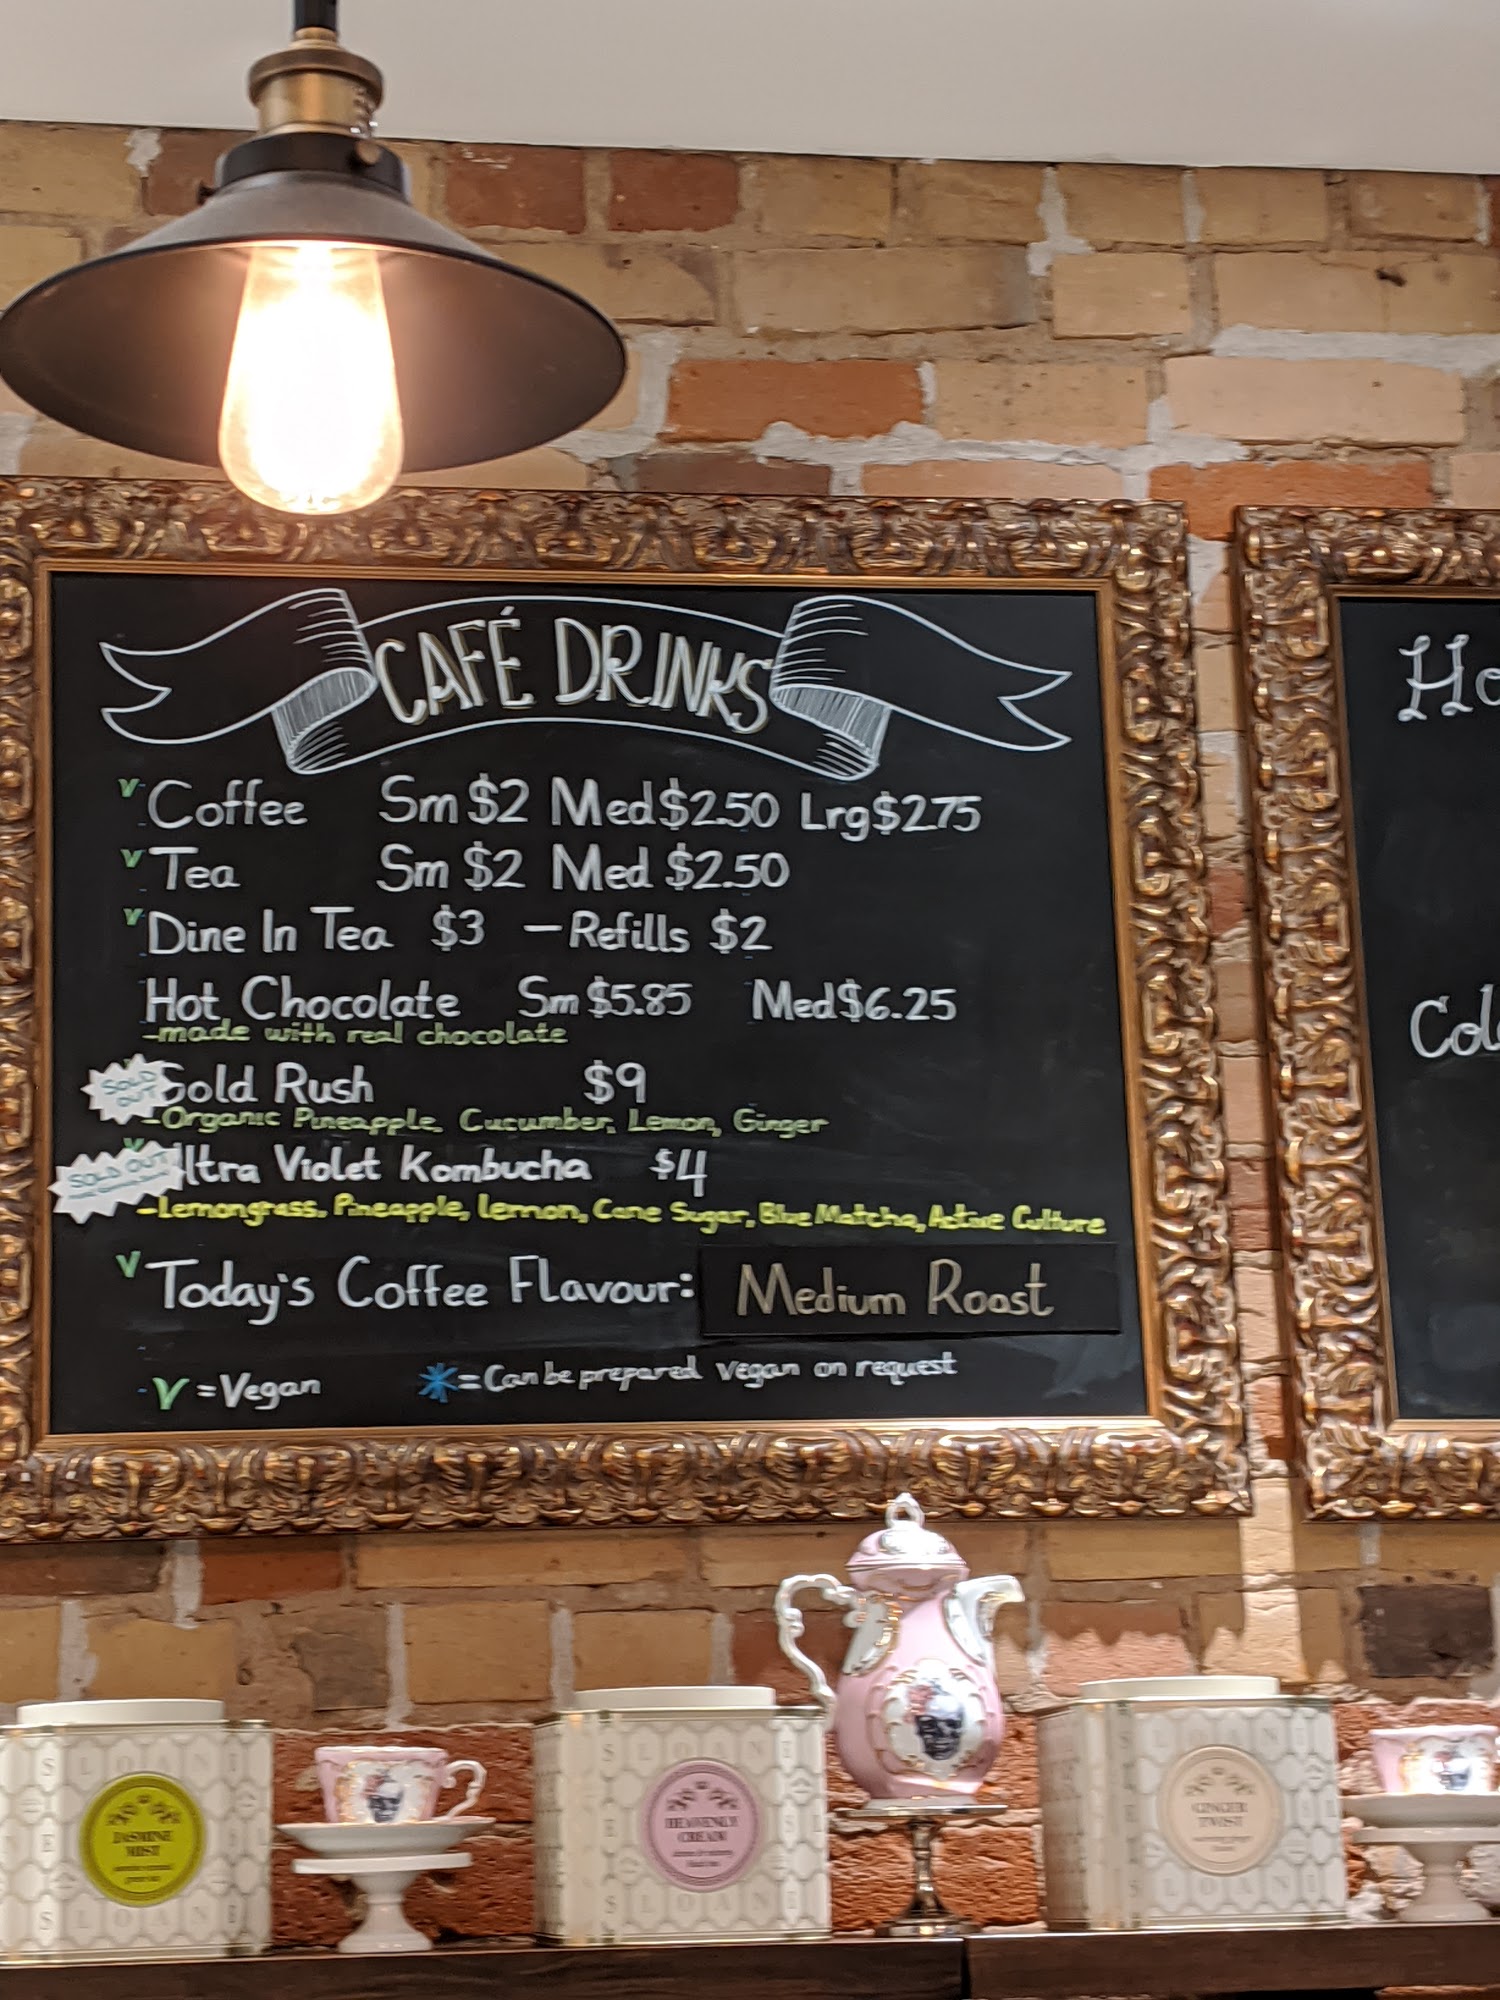 CAFÉ DRINKS
V Coffee Sm $2 Med $2.50 Lrg $2.75
V Tea Sm $2 Med $2.50
V Dine In Tea $3 – Refills $2
Hot Chocolate Sm $5.85 Med $6.25
-made with real chocolate
SOLD OUT
Gold Rush $9
-Organic Pineapple, Cucumber, Lemon, Ginger
SOLD OUT
Ultra Violet Kombucha $4
-Lemongrass, Pineapple, Lemon, Cane Sugar, Blue Matcha, Active Culture
V Today's Coffee Flavour: Medium Roast
V = Vegan * = Can be prepared vegan on request
Ho
Col
SLOANE
JASMINE
MIST
SLOANE
SLOANE
HEAVENLY
CREAM
SLOANE
SLOANE
GINGER
TWIST
SLOANE